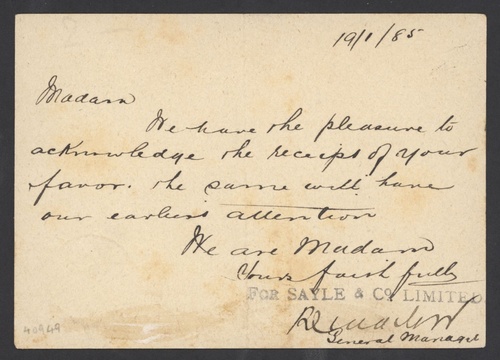 19/1/85
Madam
We have the pleasure to
acknowledge the receipt of your
favor. the same will have
our earliest attention
We are Madam
Yours faithfully
FOR SAYLE & Co. LIMITED
General Manager
40949